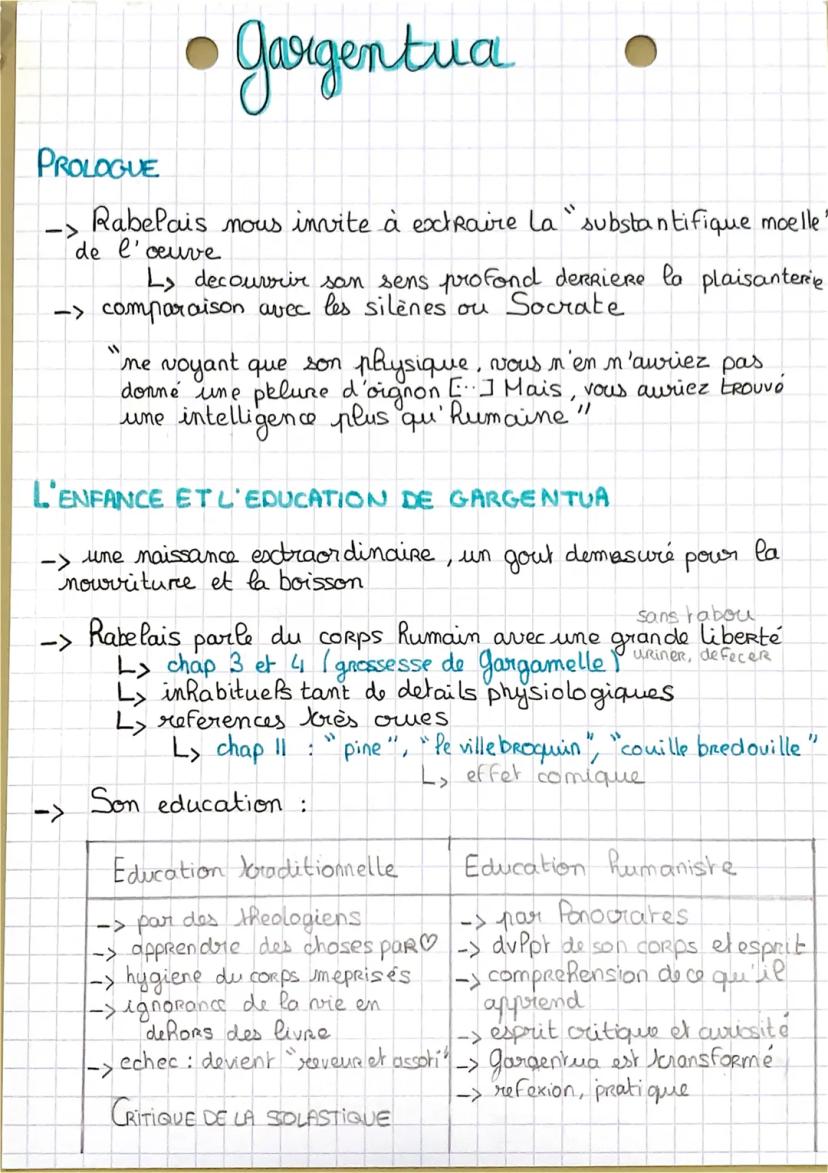 gargentua
PROLOGUE
-> Rabelais nous invite à extraire la "substantifique moelle"
de l'œuvre
↳ decouvrir son sens profond derriere la plaisanterie
-> comparaison avec les silènes ou Socrate
"ne voyant que son physique, vous n'en n'auriez pas
donné une pelure d'oignon [...] Mais, vous auriez trouvé
une intelligence plus qu'humaine"
L'ENFANCE ET L'EDUCATION DE GARGENTUA
-> une naissance extraordinaire, un gout demesuré pour la
nourriture et la boisson
sans tabou
-> Rabelais parle du corps humain avec une grande liberté
uriner, defecer
↳ chap 3 et 4 (grossesse de Gargamelle)
↳ inhabituels tant de details physiologiques
↳ references très crues
↳ chap 11 : "pine", "le villebroquin", "couille bredouille"
↳ effet comique
-> Son education :
Education traditionnelle
-> par des theologiens
-> apprendre des choses par ♡
-> hygiene du corps meprisés
-> ignorance de la vie en
dehors des livre
-> echec : devient "reveur et assoti"
CRITIQUE DE LA SOLASTIQUE
Education humaniste
-> par Ponocrates
-> dvppt de son corps et esprit
-> comprehension de ce qu'il
apprend
-> esprit critique et curiosité
-> gargentua est transformé
-> refexion, pratique